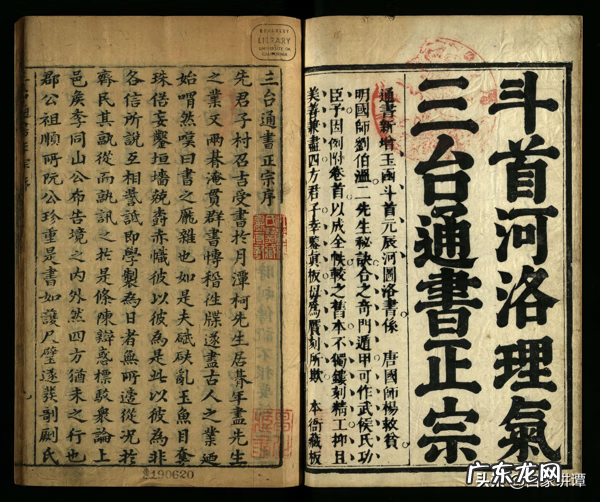 斗首河洛理氣
三台通書正宗
通書新增玉函斗首元辰河圖洛書係 唐國師楊救貧
明國師劉伯溫二先生秘訣合之奇門遁甲可作武侯氏功
臣予因例附卷首以成全帙較之舊本不獨鏤刻精工抑且
美善兼盡四方君子幸鑒真板以為贗刻所欺 本衙藏板
三台通書正宗序
先君子村召吉受書於月潭柯先生居暮年盡先生
之業又兩暮淹貫群書博稽往牒遂盡古人之業迺
始喟然嘆曰書之龐雜也如是夫碔砆亂玉魚目奪
珠借妄鑿垣墻競壽赤幟彼以彼為是此以彼為非
各信所說互相譽詆即學製為日者無所適從况於
齊民其孰從而訊之於是條陳辯惑標駁衆論上
邑侯李同山公布告境之內外然四方猶未之行也
郡公祖順所阮公珍重是書如護尺璧遂發剞劂氏
BERKELEY
LIBRARY
UNIVERSITY OF
CALIFORNIA
190620
头条@百家讲谭
广东龙网